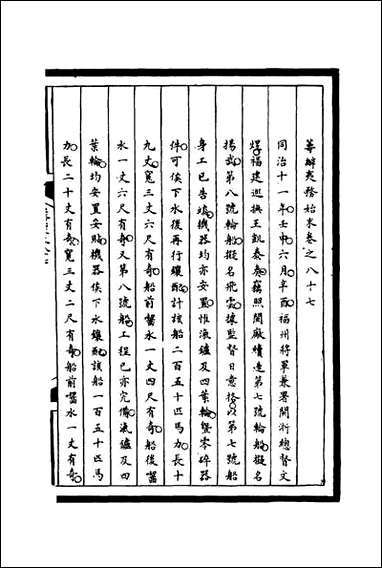 籌辦夷務始末卷之八十七
同治十一年壬申六月辛酉福州將軍兼署閩浙總督文
煜福建巡撫王凱泰奏竊照閩廠續造第七號輪船擬名
揚武第八號輪船擬名飛雲據監督日意格以第七號船
身工已告竣機器均亦安置惟汽爐及四葉輪暨零碎器
件可俟下水後再行鑲配計該船二百五十匹馬力長十
九丈寬三丈六尺有奇船前嚙水一丈四尺有奇船後嚙
水一丈六尺有奇又第八號船工程已亦完備汽爐及四
葉輪均安置安貼機器俟下水鑲配該船一百五十匹馬
力長二十丈有奇寬三丈二尺有奇船前嚙水一丈有奇